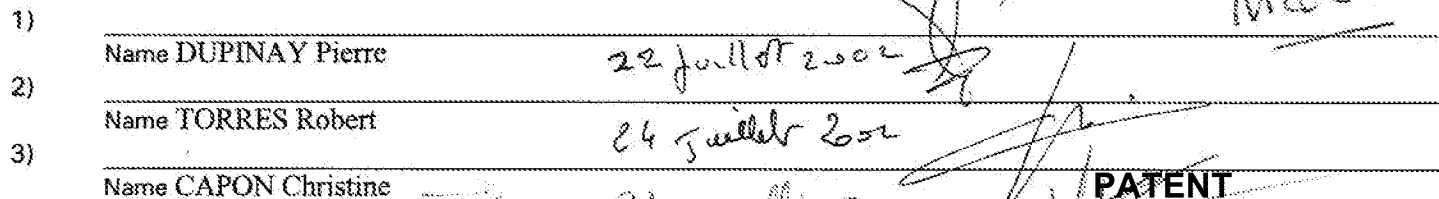 1)
Name DUPINAY Pierre 22 Juillet 2002
2)
Name TORRES Robert 24 Juillet 2002
3)
Name CAPON Christine PATENT